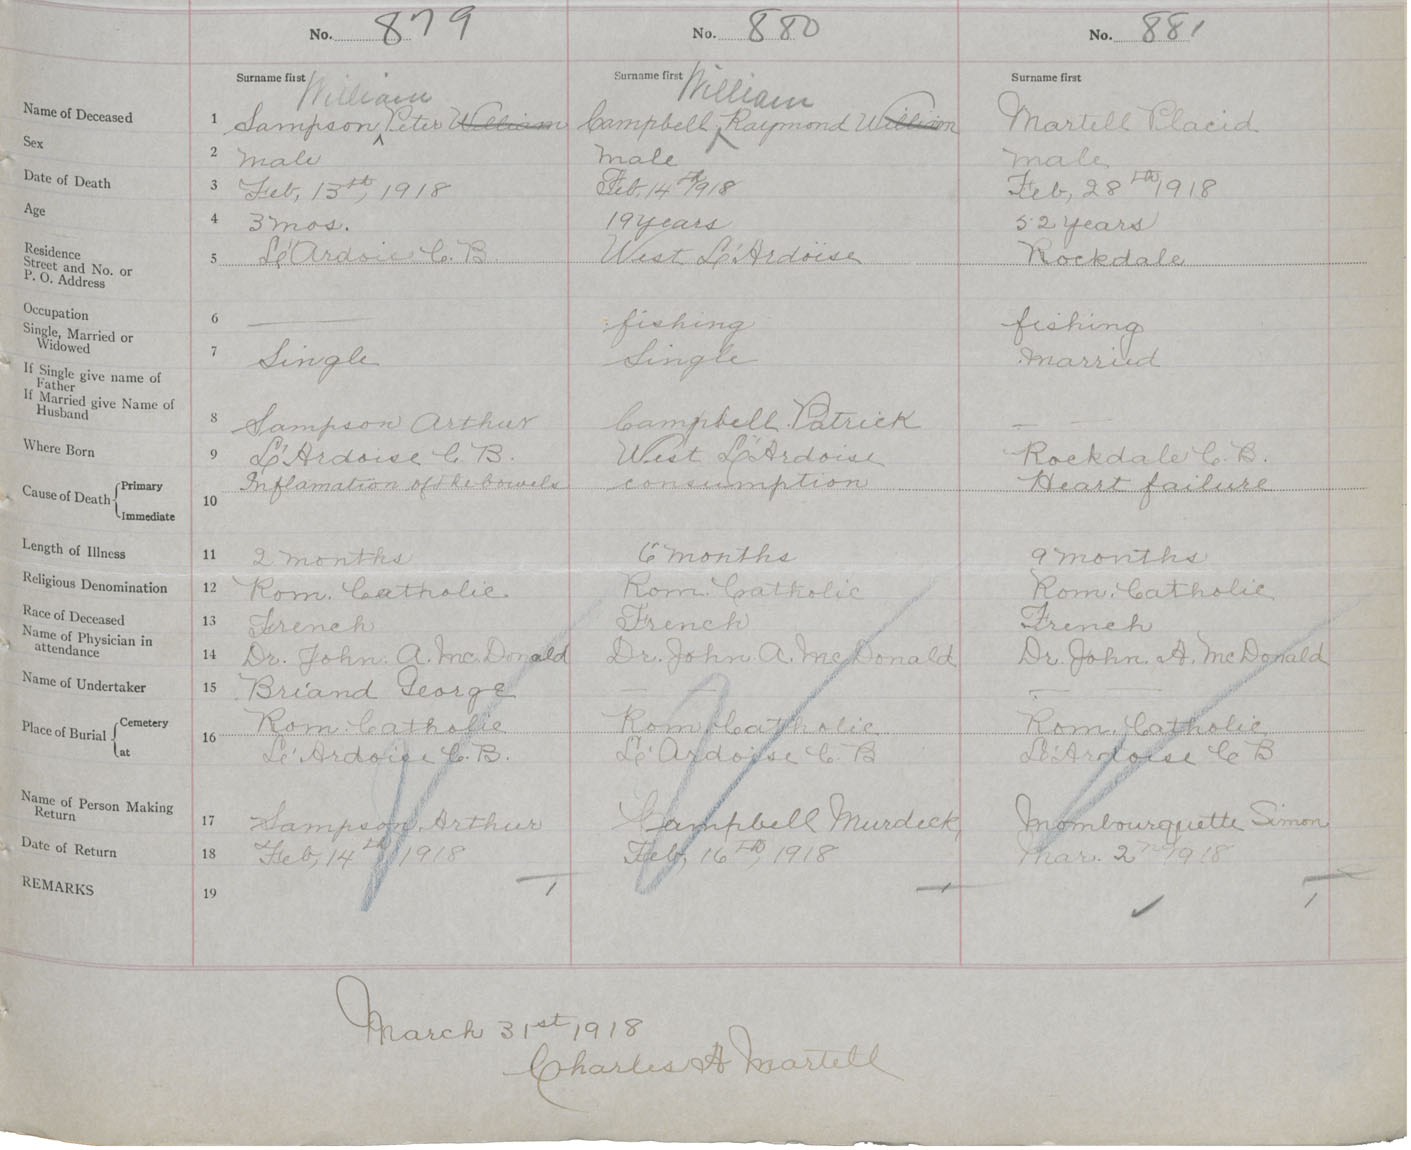 No. 879 No. 880 No. 881
Surname first Surname first Surname first
William William
Name of Deceased 1 Sampson, Peter William Campbell, Raymond William Martell Placid
Sex 2 male male male
Date of Death 3 Feb, 13th, 1918 Feb, 14th 1918 Feb, 28th 1918
Age 4 3 mos. 19 years 52 years
Residence
Street and No. or
P. O. Address 5 L'Ardoise C. B. West L'Ardoise Rockdale
Occupation 6 fishing fishing
Single, Married or
Widowed 7 Single Single Married
If Single give name of
Father
If Married give Name of
Husband 8 Sampson Arthur Campbell Patrick — —
Where Born 9 L'Ardoise C. B. West L'Ardoise Rockdale C. B.
Cause of Death Primary Inflamation of the bowels consumption Heart failure
Immediate 10
Length of Illness 11 2 months 6 months 9 months
Religious Denomination 12 Rom. Catholic. Rom. Catholic Rom. Catholic
Race of Deceased 13 French French French
Name of Physician in
attendance 14 Dr. John. A. Mc. Donald Dr. John A. Mc Donald Dr. John. A. McDonald
Name of Undertaker 15 Briand George — — —
Place of Burial Cemetery 16 Rom. Catholic Rom. Catholic Rom. Catholic
at L'Ardoise C. B. L'Ardoise C. B L'Ardoise C B
Name of Person Making
Return 17 Sampson, Arthur Campbell Murdeck, Mombourquette Simon
Date of Return 18 Feb, 14th, 1918 Feb, 16th, 1918 Mar. 2nd 1918
REMARKS 19
March 31st 1918
Charles A Martell